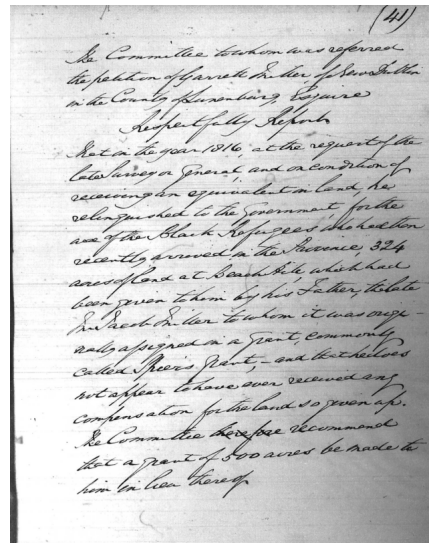 (41)
The Committee to whom was referred
the petition of Garrett Miller, of New Dublin
in the County of Lunenburg, Esquire
Respectfully Report
That in the year 1816, at the request of the
late Surveyor General, and on condition of
receiving an equivalent in land, he
relinquished to the Government, for the
use of the Black Refugees, who had then
recently arrived in the Province, 324
acres of land at Beech Hill, which had
been given to him by his Father, the late
Mr Jacob Miller to whom it was origi-
nally assigned in a Grant, commonly
called Spier's Grant, and that he does
not appear to have ever received any
compensation for the land so given up.
The Committee therefore recommend
that a grant of 500 acres be made to
him in lieu thereof